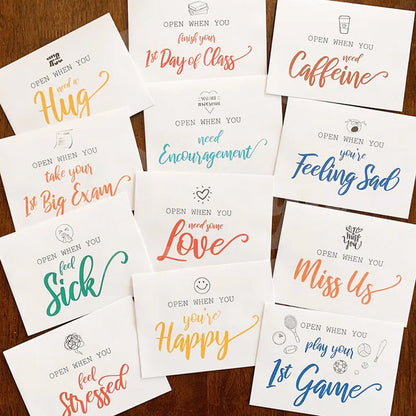 OPEN WHEN YOU
need a
Hug
OPEN WHEN YOU
finish your
1st Day of Class
OPEN WHEN YOU
need
Caffeine
OPEN WHEN YOU
take your
1st Big Exam
OPEN WHEN YOU
need
Encouragement
OPEN WHEN YOU
you're
Feeling Sad
OPEN WHEN YOU
feel
Sick
OPEN WHEN YOU
need some
Love
OPEN WHEN YOU
Miss Us
OPEN WHEN YOU
feel
Stressed
OPEN WHEN YOU
you're
Happy
OPEN WHEN YOU
play your
1st Game